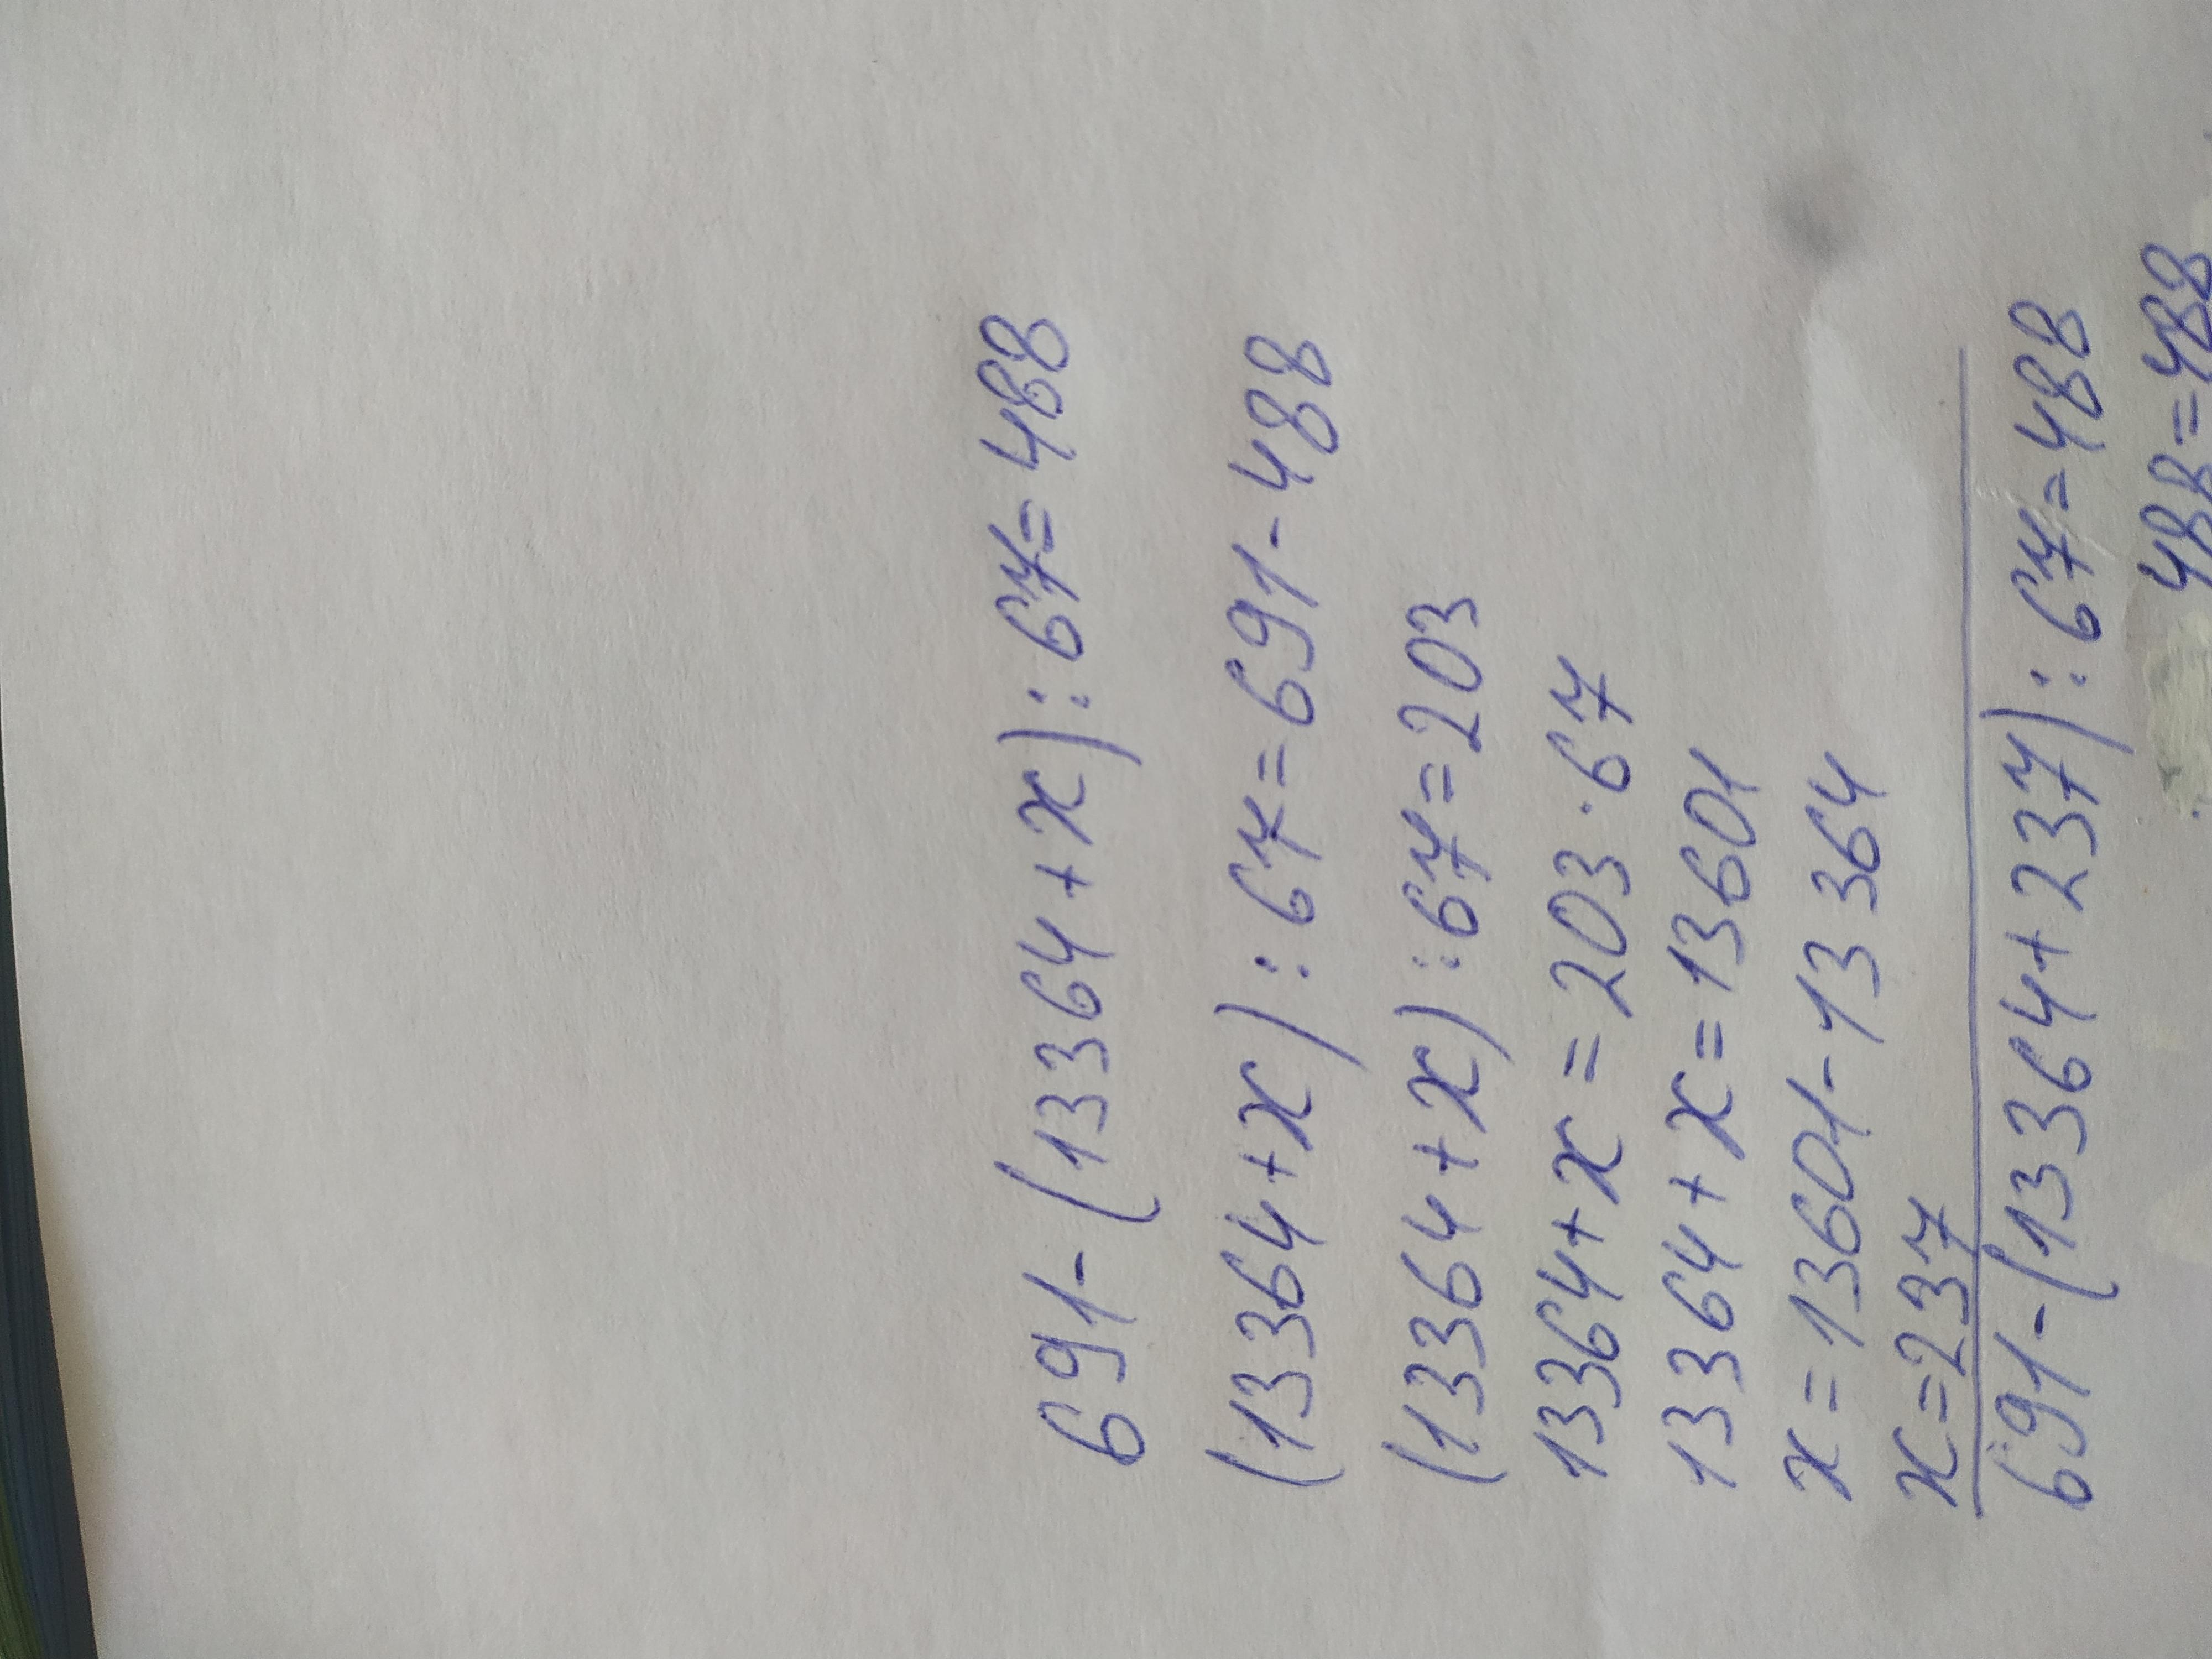 691-(13364+x):67=488
(13364+x):67=691-488
(13364+x):67=203
13364+x=203·67
13364+x=13601
x=13601-13364
x=237
691-(13364+237):67=488
488=488